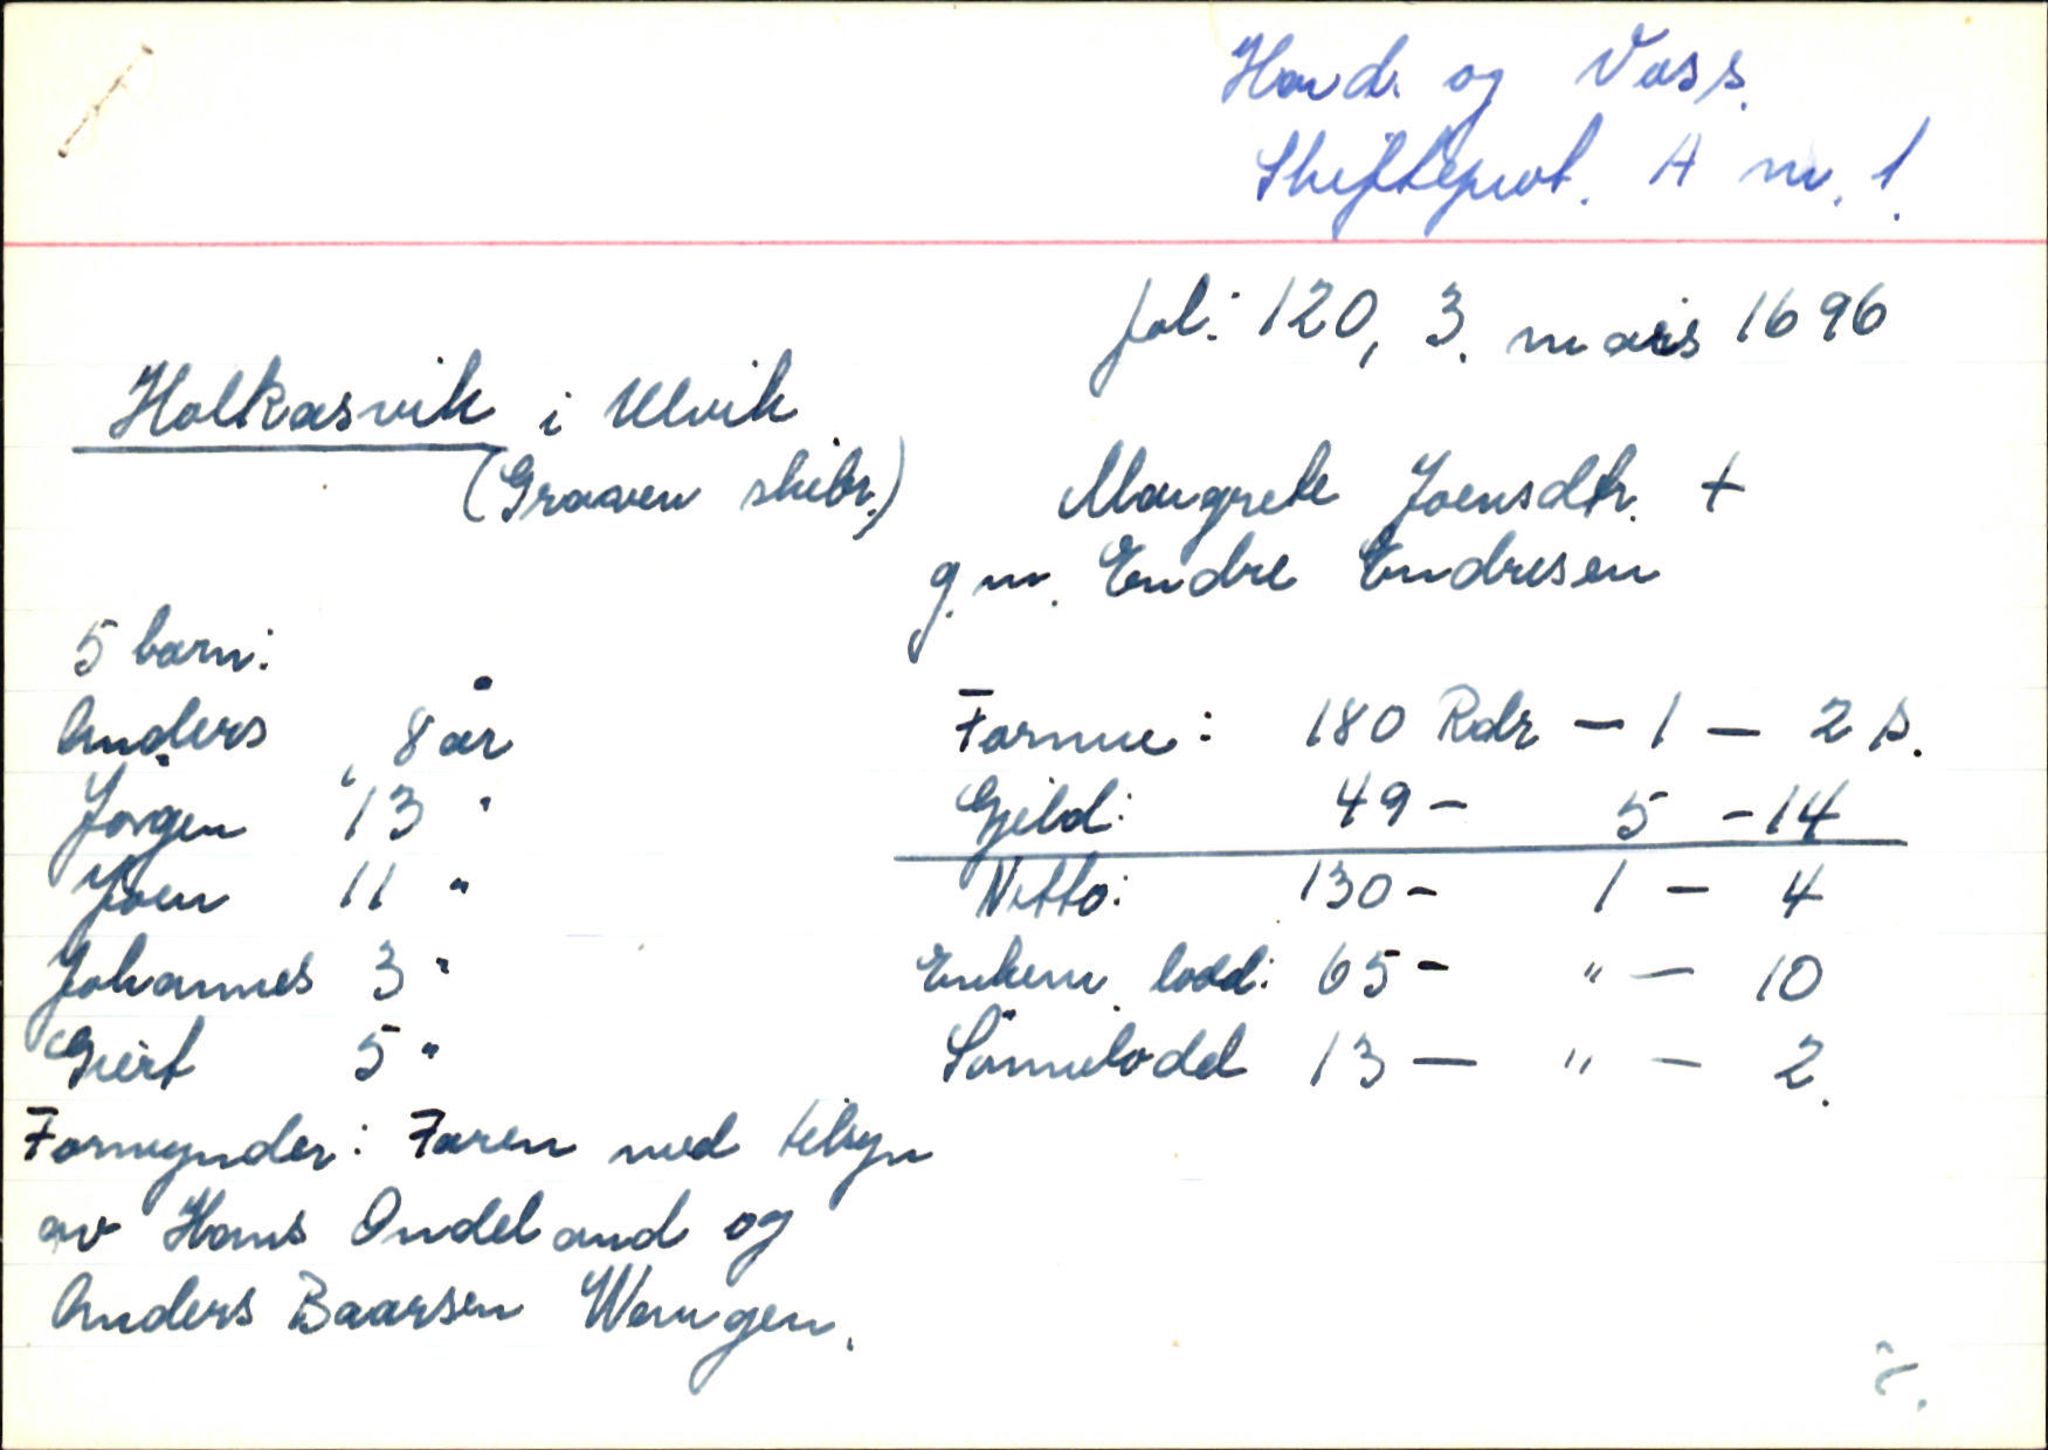 Hard. og Voss.
Skifteprot. A nr. 1.
fol: 120, 3. mars 1696
Holkasvik i Ulvik
(Graven skibr.)
Margrete Joensdtr. +
g.m. Endre Endresen
5 barn:
Anders 8 år
Jørgen 13 "
Joen 11 "
Johannes 3 "
Giert 5 "
Formue: 180 Rdr - 1 - 2 s.
Gjeld: 49 - 5 - 14
Netto: 130 - 1 - 4
Enkem. lodd: 65 - " - 10
Sönnelodd 13 - " - 2.
Formynder: Faren med tilsyn
av Hans Undeland og
Anders Baarsen